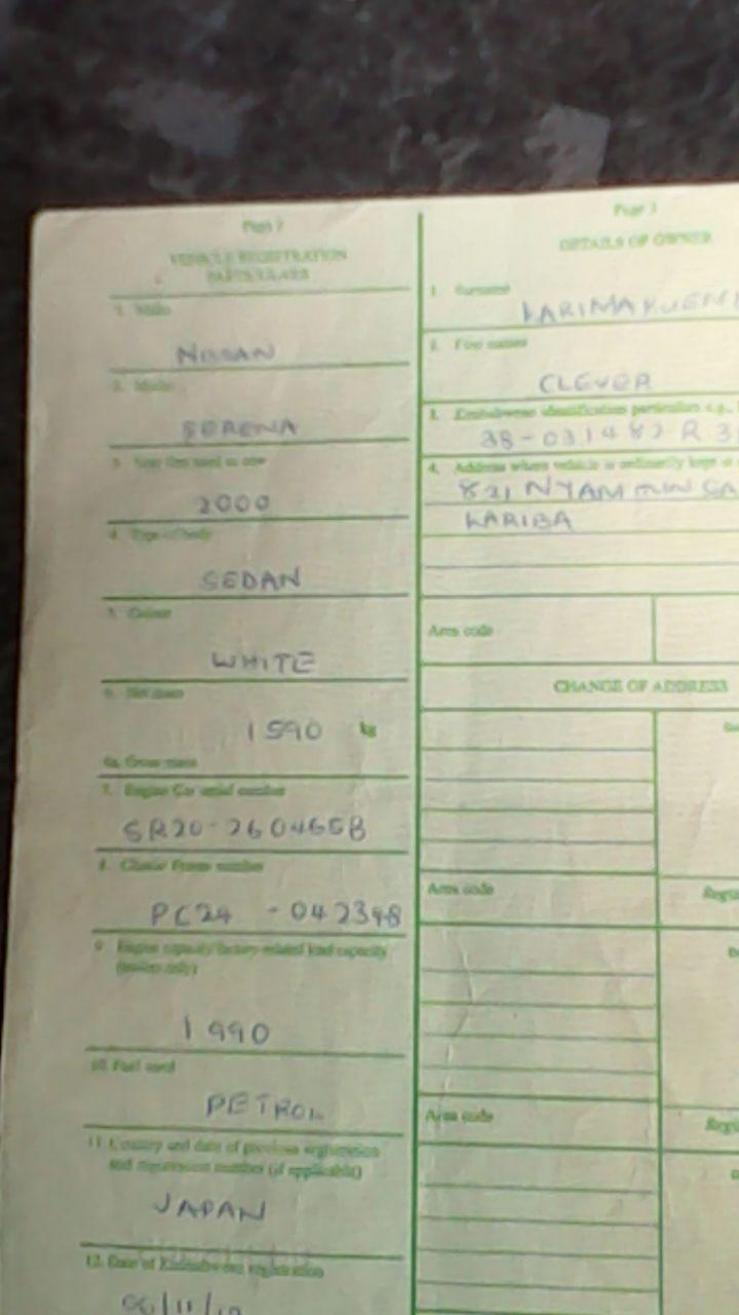 Page 2
VEHICLE REGISTRATION
PARTICULARS
1. Make
NISSAN
2. Model
SERENA
2000
4. Type of body
SEDAN
5. Colour
WHITE
6. Net mass
1590 kg
6a. Gross mass
7. Engine Car serial number
SR20-260465B
8. Chassis Frame number
PC24 - 042398
9. Engine capacity/factory-rated load capacity
1990
10. Fuel used
PETROL
11. Country and date of previous registration
and registration number (if applicable)
JAPAN
12. Date of Zimbabwean registration
Page 3
DETAILS OF OWNER
1. Surname
2. First names
CLEVER
3. Zimbabwean identification particulars e.g.,
4. Address where vehicle is ordinarily kept
821 NYAM
KARIBA
Area code
CHANGE OF ADDRESS
Area code
Area code